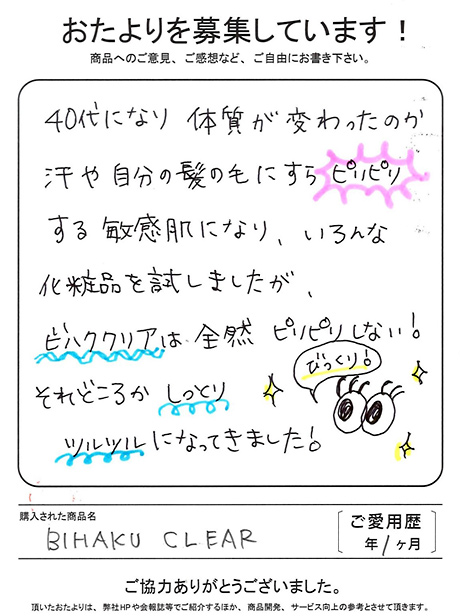 おたよりを募集しています！
商品へのご意見、ご感想など、ご自由にお書き下さい。
40代になり 体質が 変わったのか
汗や自分の髪の毛にすら ピリピリ
する 敏感肌になり、いろんな
化粧品を試しましたが、
ビハククリアは 全然 ピリピリしない！
びっくり！
それどころか しっとり
ツルツルになってきました！
購入された商品名
BIHAKU CLEAR
ご愛用歴
年/1ヶ月
ご協力ありがとうございました。
頂いたおたよりは、弊社HPや会報誌等でご紹介するほか、商品開発、サービス向上の参考とさせて頂きます。